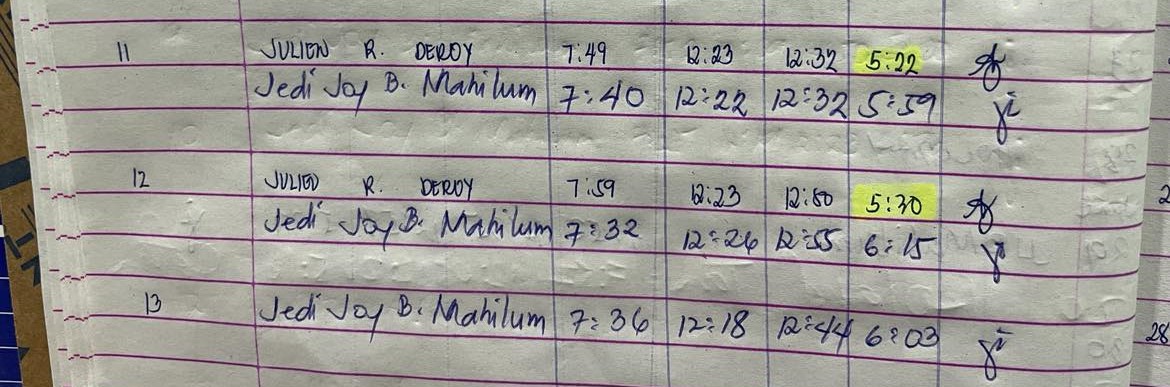 11 JULIEN R. DEROY 7:49 12:23 12:32 5:22
Jedi Joy B. Mahilum 7:40 12:22 12:32 5:59
12 JULIEN R. DEROY 7:59 12:23 12:50 5:30
Jedi Joy B. Mahilum 7:32 12:26 12:55 6:15
13 Jedi Joy B. Mahilum 7:36 12:18 12:44 6:03
28